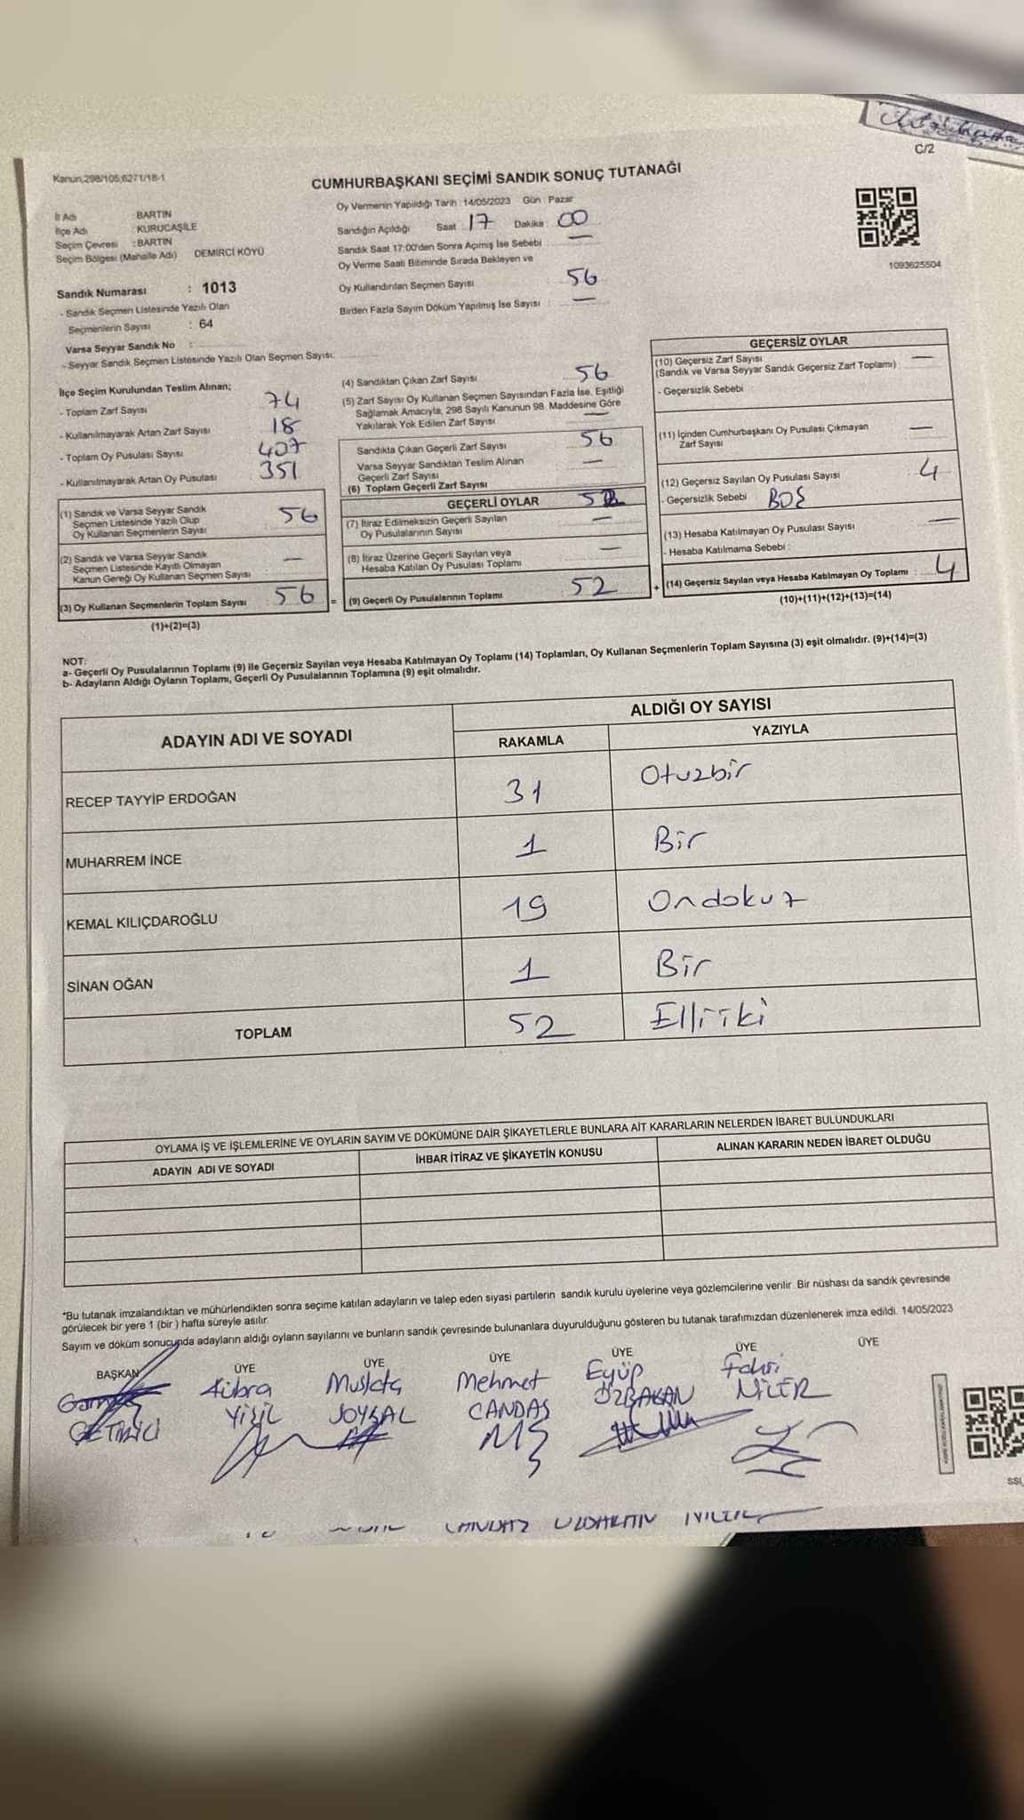 C/2
Kanun;298/105;6271/18-1
CUMHURBAŞKANI SEÇİMİ SANDIK SONUÇ TUTANAĞI
İl Adı BARTIN
İlçe Adı : KURUCAŞİLE
Seçim Çevresi : BARTIN
Seçim Bölgesi (Mahalle Adı) DEMİRCİ KÖYÜ
Sandık Numarası : 1013
- Sandık Seçmen Listesinde Yazılı Olan
Seçmenlerin Sayısı : 64
Varsa Seyyar Sandık No :
- Seyyar Sandık Seçmen Listesinde Yazılı Olan Seçmen Sayısı:
Oy Vermenin Yapıldığı Tarih : 14/05/2023 Gün : Pazar
Sandığın Açıldığı Saat : 17 Dakika : 00
Sandık Saat 17:00'den Sonra Açımış İse Sebebi : —
Oy Verme Saati Bitiminde Sırada Bekleyen ve
Oy Kullandırılan Seçmen Sayısı : 56
Birden Fazla Sayım Döküm Yapılmış İse Sayısı : —
1093625504
İlçe Seçim Kurulundan Teslim Alınan;
- Toplam Zarf Sayısı 74
- Kullanılmayarak Artan Zarf Sayısı 18
- Toplam Oy Pusulası Sayısı 407
- Kullanılmayarak Artan Oy Pusulası 351
(1) Sandık ve Varsa Seyyar Sandık
Seçmen Listesinde Yazılı Olup
Oy Kullanan Seçmenlerin Sayısı 56
(2) Sandık ve Varsa Seyyar Sandık
Seçmen Listesinde Kayıtlı Olmayan
Kanun Gereği Oy Kullanan Seçmen Sayısı —
(3) Oy Kullanan Seçmenlerin Toplam Sayısı 56 =
(1)+(2)=(3)
(4) Sandıktan Çıkan Zarf Sayısı 56
(5) Zarf Sayısı Oy Kullanan Seçmen Sayısından Fazla İse, Eşitliği
Sağlamak Amacıyla, 298 Sayılı Kanunun 98. Maddesine Göre
Yakılarak Yok Edilen Zarf Sayısı —
Sandıkta Çıkan Geçerli Zarf Sayısı 56
Varsa Seyyar Sandıktan Teslim Alınan
Geçerli Zarf Sayısı —
(6) Toplam Geçerli Zarf Sayısı
GEÇERLİ OYLAR
(7) İtiraz Edilmeksizin Geçerli Sayılan
Oy Pusulalarının Sayısı —
(8) İtiraz Üzerine Geçerli Sayılan veya
Hesaba Katılan Oy Pusulası Toplamı —
(9) Geçerli Oy Pusulalarının Toplamı 52 +
GEÇERSİZ OYLAR
(10) Geçersiz Zarf Sayısı —
(Sandık ve Varsa Seyyar Sandık Geçersiz Zarf Toplamı)
- Geçersizlik Sebebi
(11) İçinden Cumhurbaşkanı Oy Pusulası Çıkmayan
Zarf Sayısı —
(12) Geçersiz Sayılan Oy Pusulası Sayısı 4
- Geçersizlik Sebebi BOŞ
(13) Hesaba Katılmayan Oy Pusulası Sayısı —
- Hesaba Katılmama Sebebi :
(14) Geçersiz Sayılan veya Hesaba Katılmayan Oy Toplamı 4
(10)+(11)+(12)+(13)=(14)
NOT:
a- Geçerli Oy Pusulalarının Toplamı (9) ile Geçersiz Sayılan veya Hesaba Katılmayan Oy Toplamı (14) Toplamları, Oy Kullanan Seçmenlerin Toplam Sayısına (3) eşit olmalıdır. (9)+(14)=(3)
b- Adayların Aldığı Oyların Toplamı, Geçerli Oy Pusulalarının Toplamına (9) eşit olmalıdır.
ADAYIN ADI VE SOYADI ALDIĞI OY SAYISI
RAKAMLA YAZIYLA
RECEP TAYYİP ERDOĞAN 31 Otuzbir
MUHARREM İNCE 1 Bir
KEMAL KILIÇDAROĞLU 19 Ondokuz
SİNAN OĞAN 1 Bir
TOPLAM 52 Elliiki
OYLAMA İŞ VE İŞLEMLERİNE VE OYLARIN SAYIM VE DÖKÜMÜNE DAİR ŞİKAYETLERLE BUNLARA AİT KARARLARIN NELERDEN İBARET BULUNDUKLARI
ADAYIN ADI VE SOYADI İHBAR İTİRAZ VE ŞİKAYETİN KONUSU ALINAN KARARIN NEDEN İBARET OLDUĞU
*Bu tutanak imzalandıktan ve mühürlendikten sonra seçime katılan adayların ve talep eden siyasi partilerin sandık kurulu üyelerine veya gözlemcilerine verilir. Bir nüshası da sandık çevresinde
görülecek bir yere 1 (bir ) hafta süreyle asılır.
Sayım ve döküm sonucunda adayların aldığı oyların sayılarını ve bunların sandık çevresinde bulunanlara duyurulduğunu gösteren bu tutanak tarafımızdan düzenlenerek imza edildi. 14/05/2023
BAŞKAN ÜYE ÜYE ÜYE ÜYE ÜYE ÜYE
Kübra Mustafa Mehmet Eyüp Fahri
YİĞİL SOYSAL CANDAŞ ÖZBAKAN NİLER